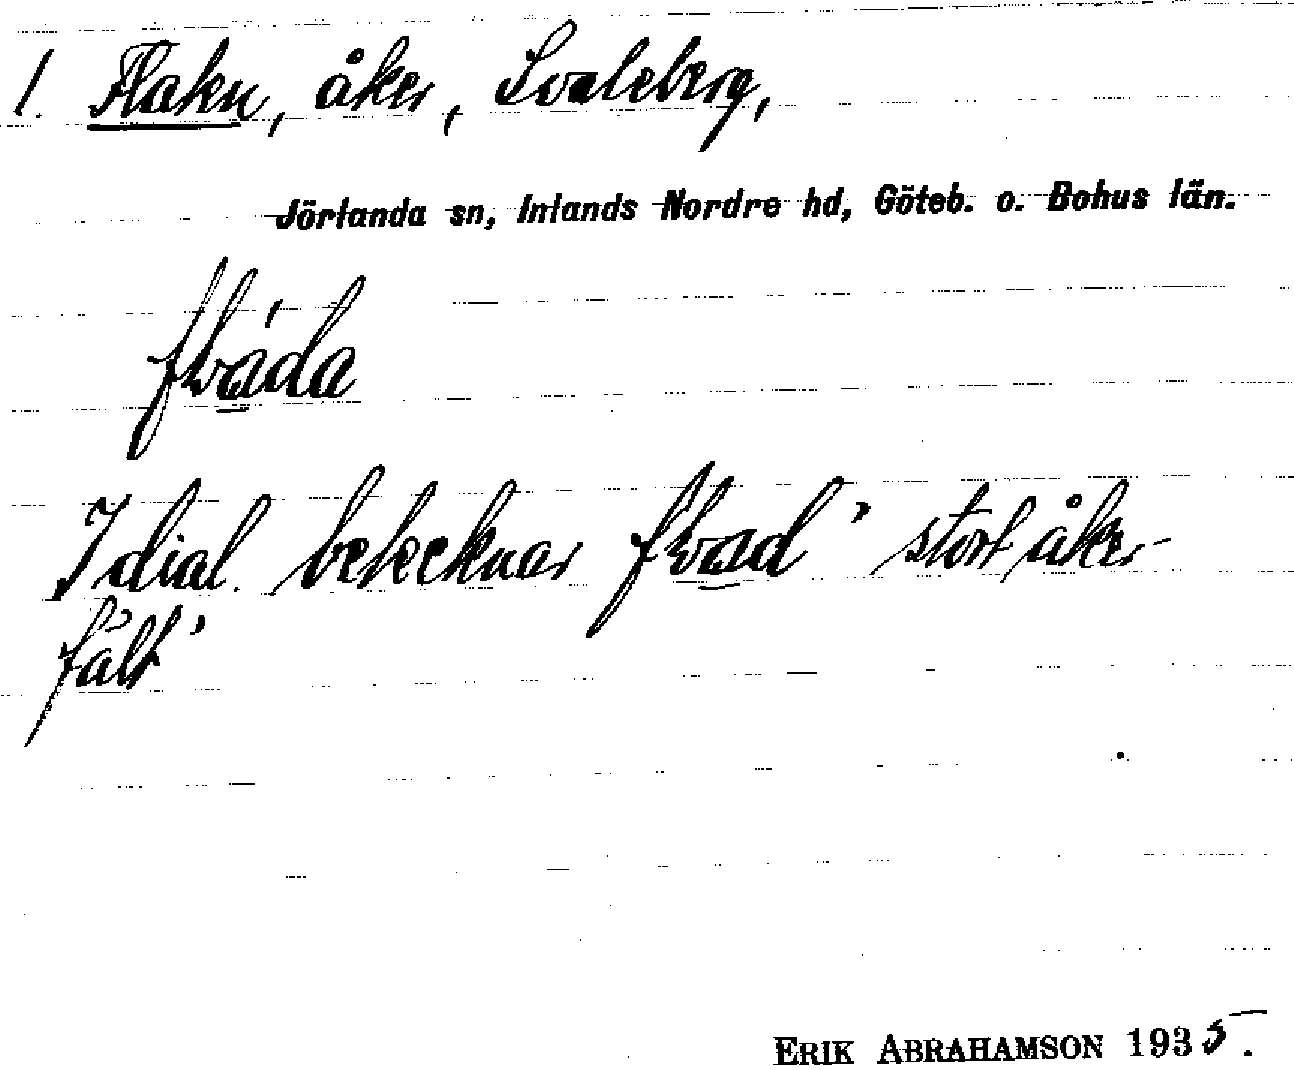 1. Flaken, åker, Svaleberg,
Jörlanda sn, Inlands Nordre hd, Göteb. o. Bohus län.
I dial. betecknar ' stort åker-
fält'
ERIK ABRAHAMSON 1935.